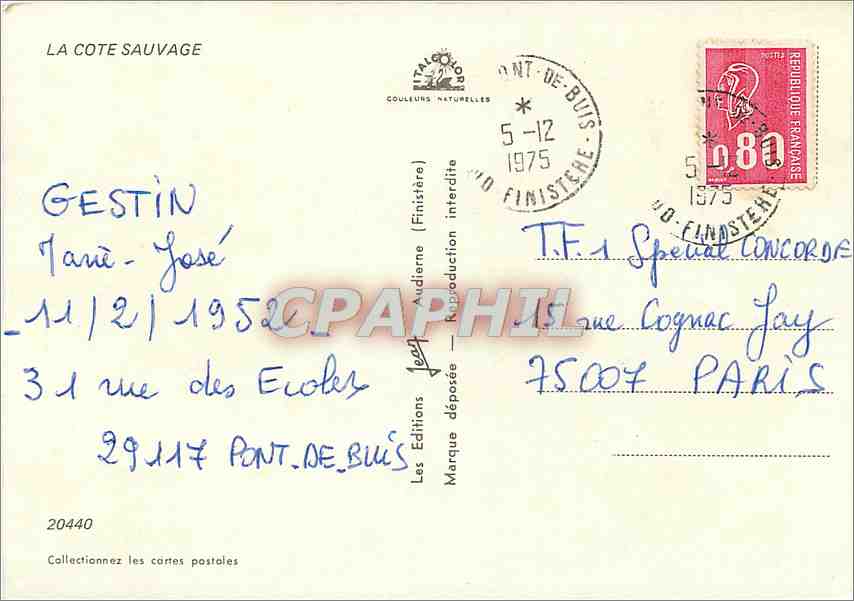 LA COTE SAUVAGE
ITALCOLOR
COULEURS NATURELLES
PONT-DE-BUIS
*
5-12
1975
FINISTERE
POSTES
REPUBLIQUE FRANÇAISE
0,80
*
5-12
1975
FINISTERE
GESTIN
Marie-José
-11/2/1952-
31 rue des Ecoles
29117 PONT-DE-BUIS
Les Editions Jean Audierne (Finistère)
Marque déposée — Reproduction interdite
T.F.1 Spécial CONCORDE
15 rue Cognac Jay
75007 PARIS
CPAPHIL
20440
Collectionnez les cartes postales